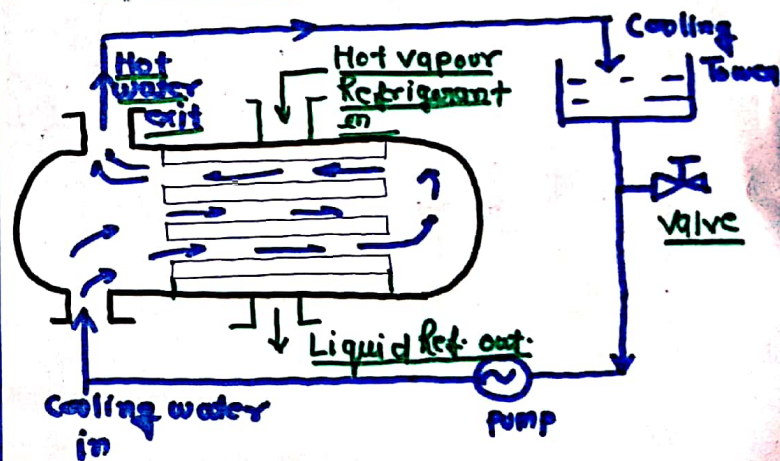 Hot
water
exit
Hot vapour
Refrigerant
in
Cooling
Tower
Valve
Liquid Ref. out.
Cooling water
in
Pump